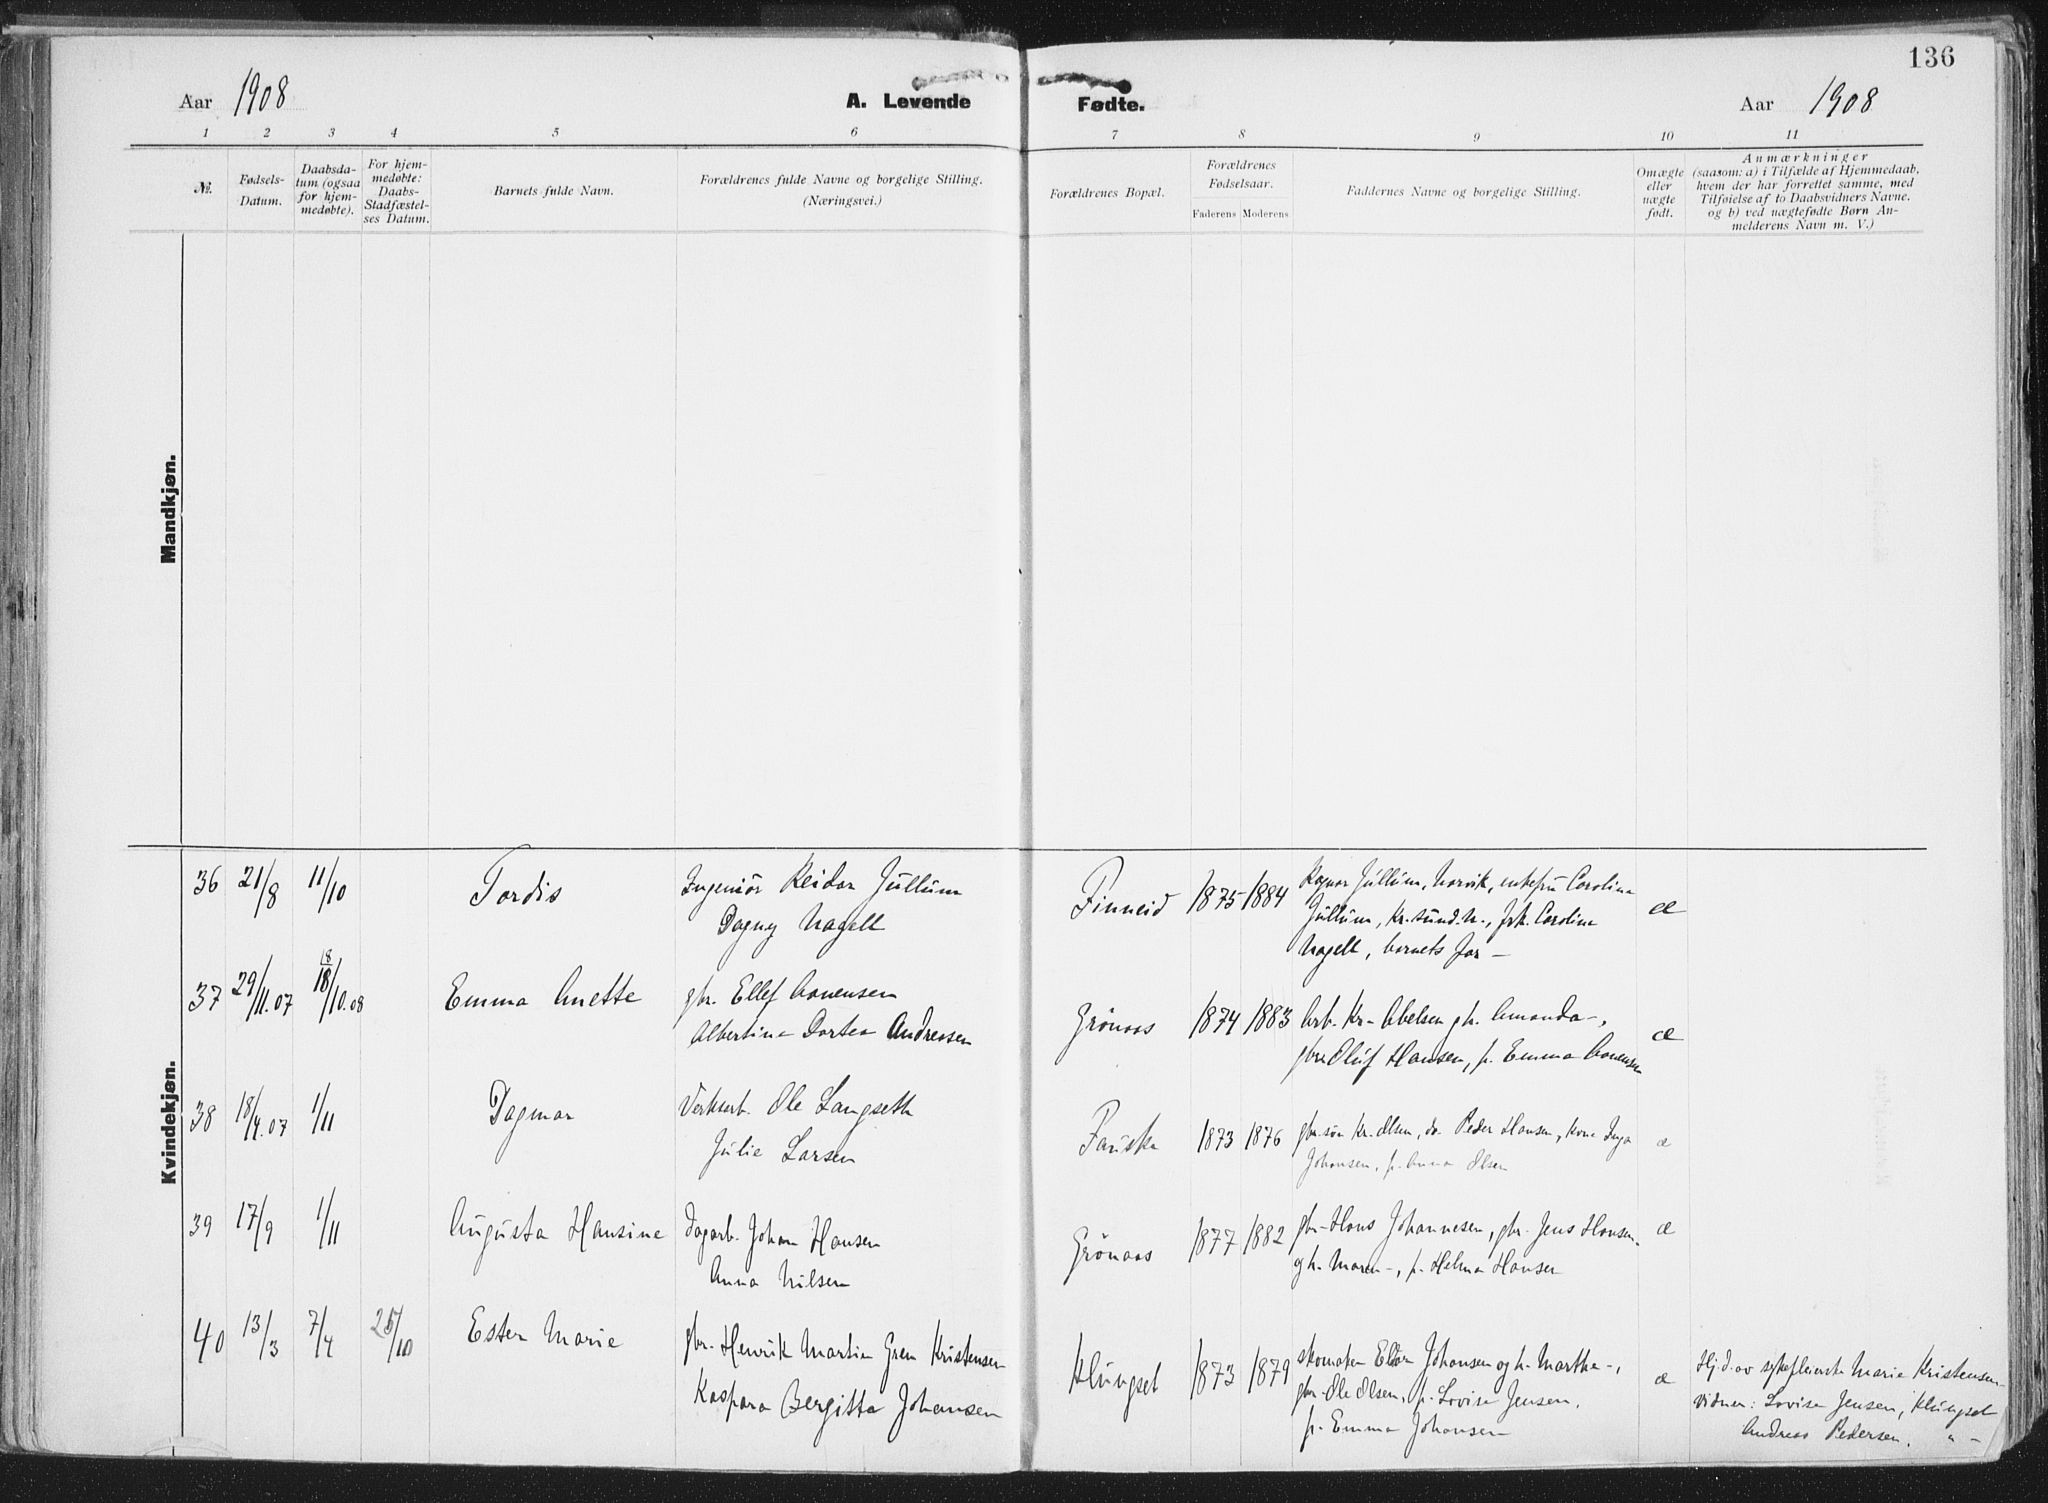 136
Aar 1908
A. Levende Fødte.
Aar 1908
1 2 3 4 5 6 7 8 9 10 11
№.
Fødsels-
Datum.
Daabsda-
tum (ogsaa
for hjem-
medøbte).
For hjem-
medøbte:
Daabs-
Stadfæstel-
ses Datum.
Barnets fulde Navn.
Forældrenes fulde Navne og borgelige Stilling.
(Næringsvei.)
Forældrenes Bopæl.
Forældrenes
Fødselsaar.
Faderens Moderens
Faddernes Navne og borgelige Stilling.
Omægte
eller
uægte
født.
Anmærkninger
(saasom: a) i Tilfælde af Hjemmedaab,
hvem der har forrettet samme, med
Tilføielse af to Daabsvidners Navne,
og b) ved uægtefødte Børn An-
melderens Navn m. V.)
Mandkjøn.
Kvindekjøn.
36 21/8 11/10
Tordis
Ingeniör Reidar Jüllum
Dagny Nagell
Finneid 1875 1884
Ragnar Jüllum, Narvik, enkefru Carolina
Jüllum, Kr.sund.N., frk. Carolina
Nagell, barnets far -
æ
37 29/11.07 18/10.08
Emma Anette
gbr. Ellef Aanensen
Albertina Dortea Andreasen
Grönaas 1874 1883
Arb. Kr. Abelsen og h. Amanda -,
gbr. Oluf Hansen, p. Emma Aanensen
æ
38 18/4.07 1/11
Dagmar
Verkarb. Ole Langseth
Julie Larsen
Fauska 1873 1876
gbr.sön Kr. Olsen, do. Peder Hansen, kone Inga
Johansen, p. Anna Olsen
æ
39 17/9 1/11
Augusta Hansine
Dagarb. Johan Hansen
Anna Nilsen
Grönaas 1877 1882
gbr. Hans Johannesen, gbr. Jens Hansen
og h. Maren -, p. Helma Hansen
æ
40 13/3 7/4 25/10
Ester Marie
gbr. Henrik Martin Gren Kristensen
Kaspara Bergitta Johansen
Klungset 1873 1879
skomaker Johansen og h. Martha -,
gbr. Ole Olsen, p. Lovise Jensen,
p. Emma Johansen
æ
Hj.d. av sykepleierske Marie Kristensen
Vidner: Lovise Jensen, Klungset
Andreas Pedersen, " -